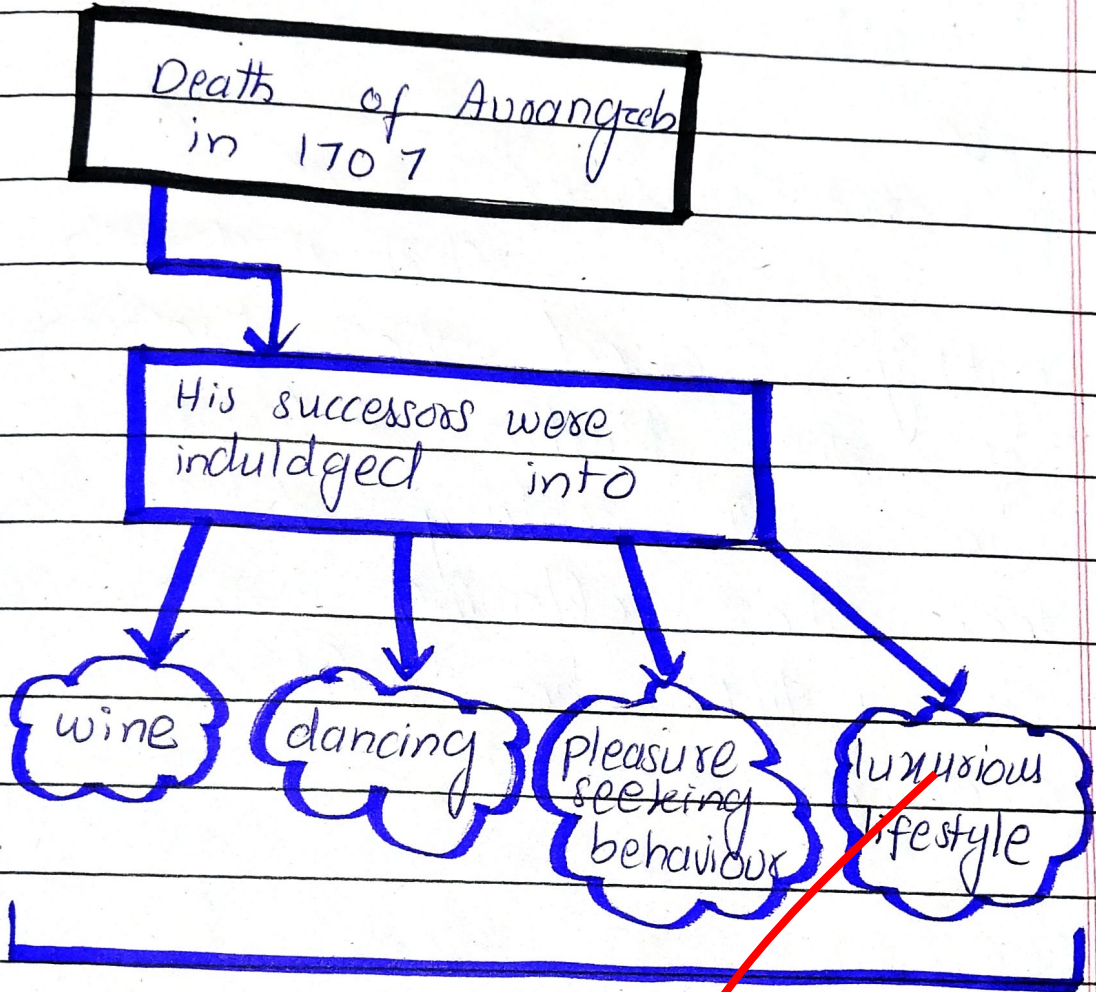 Death of Auoangzeb
in 1707
His successors were
induldged into
wine
dancing
pleasure
seeking
behaviour
luxurious
lifestyle